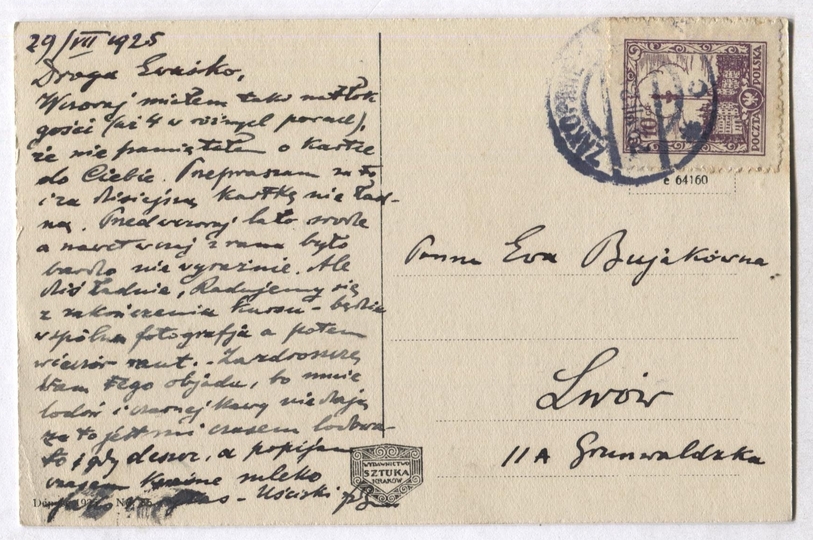 29/VII 1925
Droga Ewuśko,
Wczoraj miałem taki natłok
gości (aż 4 w różnych porach),
że nie pamiętałem o kartce
do Ciebie. Przepraszam za to
i za dzisiejszą kartkę nie ład-
ną. Przedwczoraj lało
a nawet wczoraj z rana było
bardzo nie wyraźnie. Ale
dziś ładnie, Radujemy się
z zakończenia kursu - będzie
wspólna fotografja a potem
wieczór raut. - Zazdroszczę
Wam tego objadu, bo mnie
lodów i czarnej kawy nie dają
za to jest mi czasem lodowa-
to gdy deszcz, a popijam
czasem kwaśne mleko
Uściski
ZAKOPANE
10
POCZTA POLSKA
e 64160
Panna Ewa Bujakówna
Lwów
11A Grunwaldzka
WYDAWNICTWO
SZTUKA
KRAKÓW